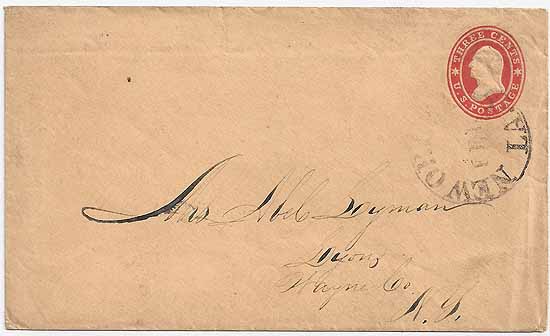 THREE CENTS
U.S. POSTAGE
NEW OR LA
Mrs Abel Lyman
Lyons
Wayne Co.
N.Y.